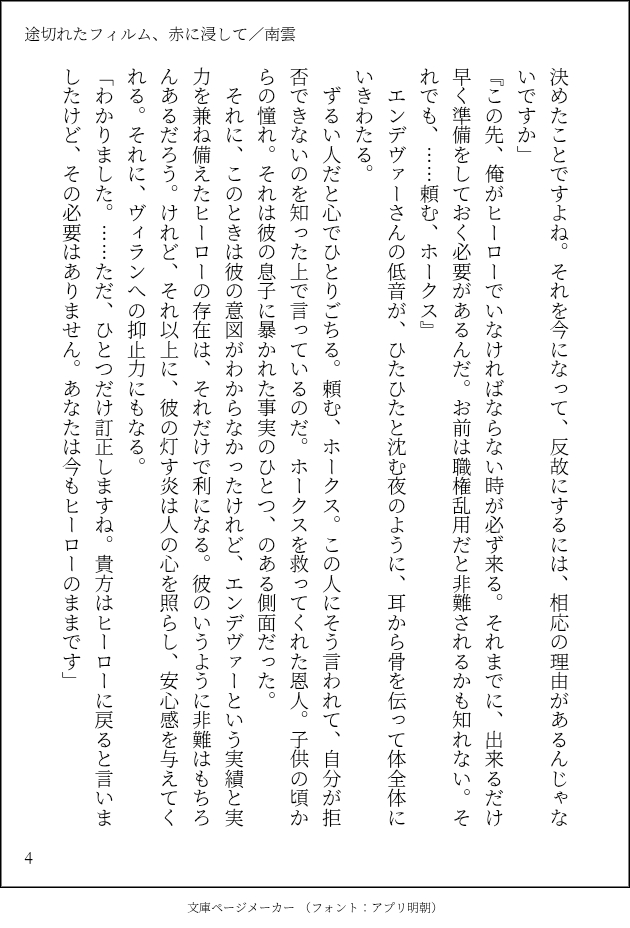 途切れたフィルム、赤に浸して／南雲
決めたことですよね。それを今になって、反故にするには、相応の理由があるんじゃな
いですか」
『この先、俺がヒーローでいなければならない時が必ず来る。それまでに、出来るだけ
早く準備をしておく必要があるんだ。お前は職権乱用だと非難されるかも知れない。そ
れでも、……頼む、ホークス』
　エンデヴァーさんの低音が、ひたひたと沈む夜のように、耳から骨を伝って体全体に
いきわたる。
　ずるい人だと心でひとりごちる。頼む、ホークス。この人にそう言われて、自分が拒
否できないのを知った上で言っているのだ。ホークスを救ってくれた恩人。子供の頃か
らの憧れ。それは彼の息子に暴かれた事実のひとつ、のある側面だった。
　それに、このときは彼の意図がわからなかったけれど、エンデヴァーという実績と実
力を兼ね備えたヒーローの存在は、それだけで利になる。彼のいうように非難はもちろ
んあるだろう。けれど、それ以上に、彼の灯す炎は人の心を照らし、安心感を与えてく
れる。それに、ヴィランへの抑止力にもなる。
「わかりました。……ただ、ひとつだけ訂正しますね。貴方はヒーローに戻ると言いま
したけど、その必要はありません。あなたは今もヒーローのままです」
4
文庫ページメーカー （フォント：アプリ明朝）